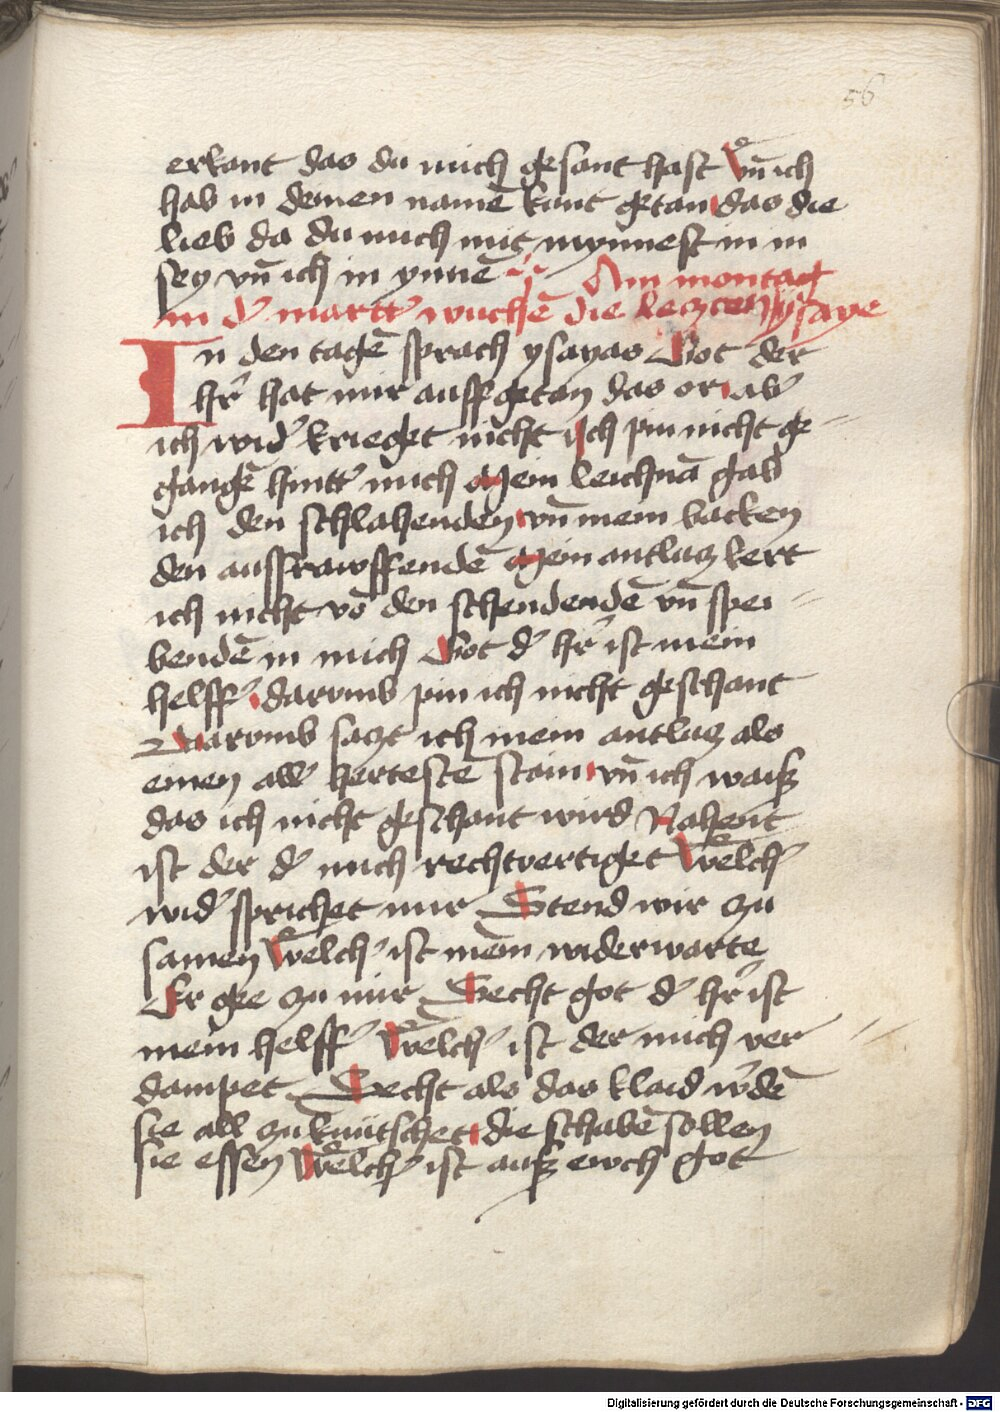 56
erkant das du mich gesant hast Vn̄ ich
hab in deinen namē kunt getan das die
lieb da du mich mit mynnest in in
sey vn̄ ich in ynnē Am montag
in d' martt' wuchē die leczen ysaye
In den tagē sprach ysayas Got der
h'r hat mir auffgetan das or aw'
ich wid' krieget nicht ich pin nicht ge-
gangē hintt' mich Mein leichnā gab
ich den schlahenden vn̄ mein backen
den auffrawffendē Mein antlucz kert
ich nicht vō den schendendē vn̄ spei-
bendē in mich Got d' h'r ist mein
helff' darvmb pin ich nicht geschant
Darvmb saczt ich mein antlucz als
einen all' hertestē stain vn̄ ich waisz
das ich nicht geschant wird Nahent
ist der d' mich rechtvertiget Welch'
wid' sprichet mir Stend wir zu
samen Welch' ist mein widerwarte
Er gee zu mir Secht got d' h'r ist
mein helff' Welch' ist der mich ver-
dampet Secht als das klaid w'dē
sie all zuknütschet die schabē sollen
sie essen Welch' ist ausz ewch got
Digitalisierung gefördert durch die Deutsche Forschungsgemeinschaft - DFG